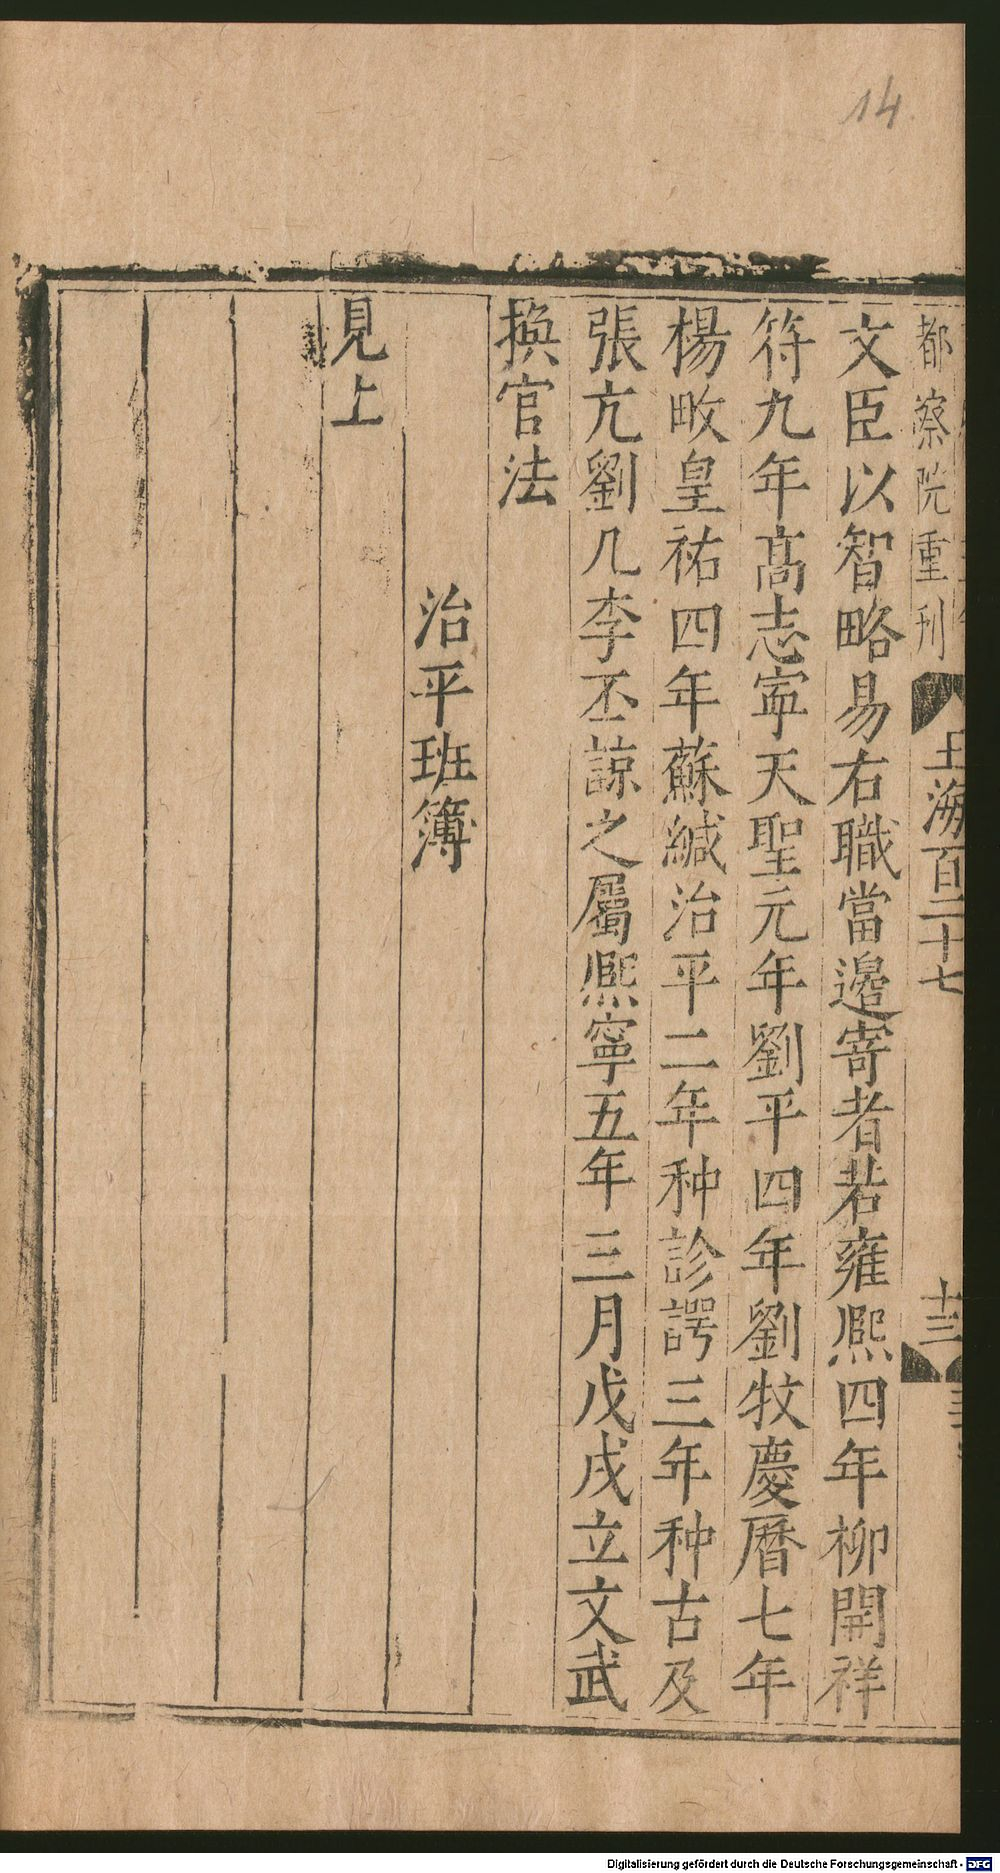 14
都察院重刊
玉海百二十七
十三
文臣以智略易右職當邊寄者若雍熙四年柳開祥
符九年高志寧天聖元年劉平四年劉牧慶曆七年
楊畋皇祐四年蘇緘治平二年种診諤三年种古及
張亢劉几李丕諒之屬熙寧五年三月戊戌立文武
換官法
治平班簿
見上
Digitalisierung gefördert durch die Deutsche Forschungsgemeinschaft - DFG